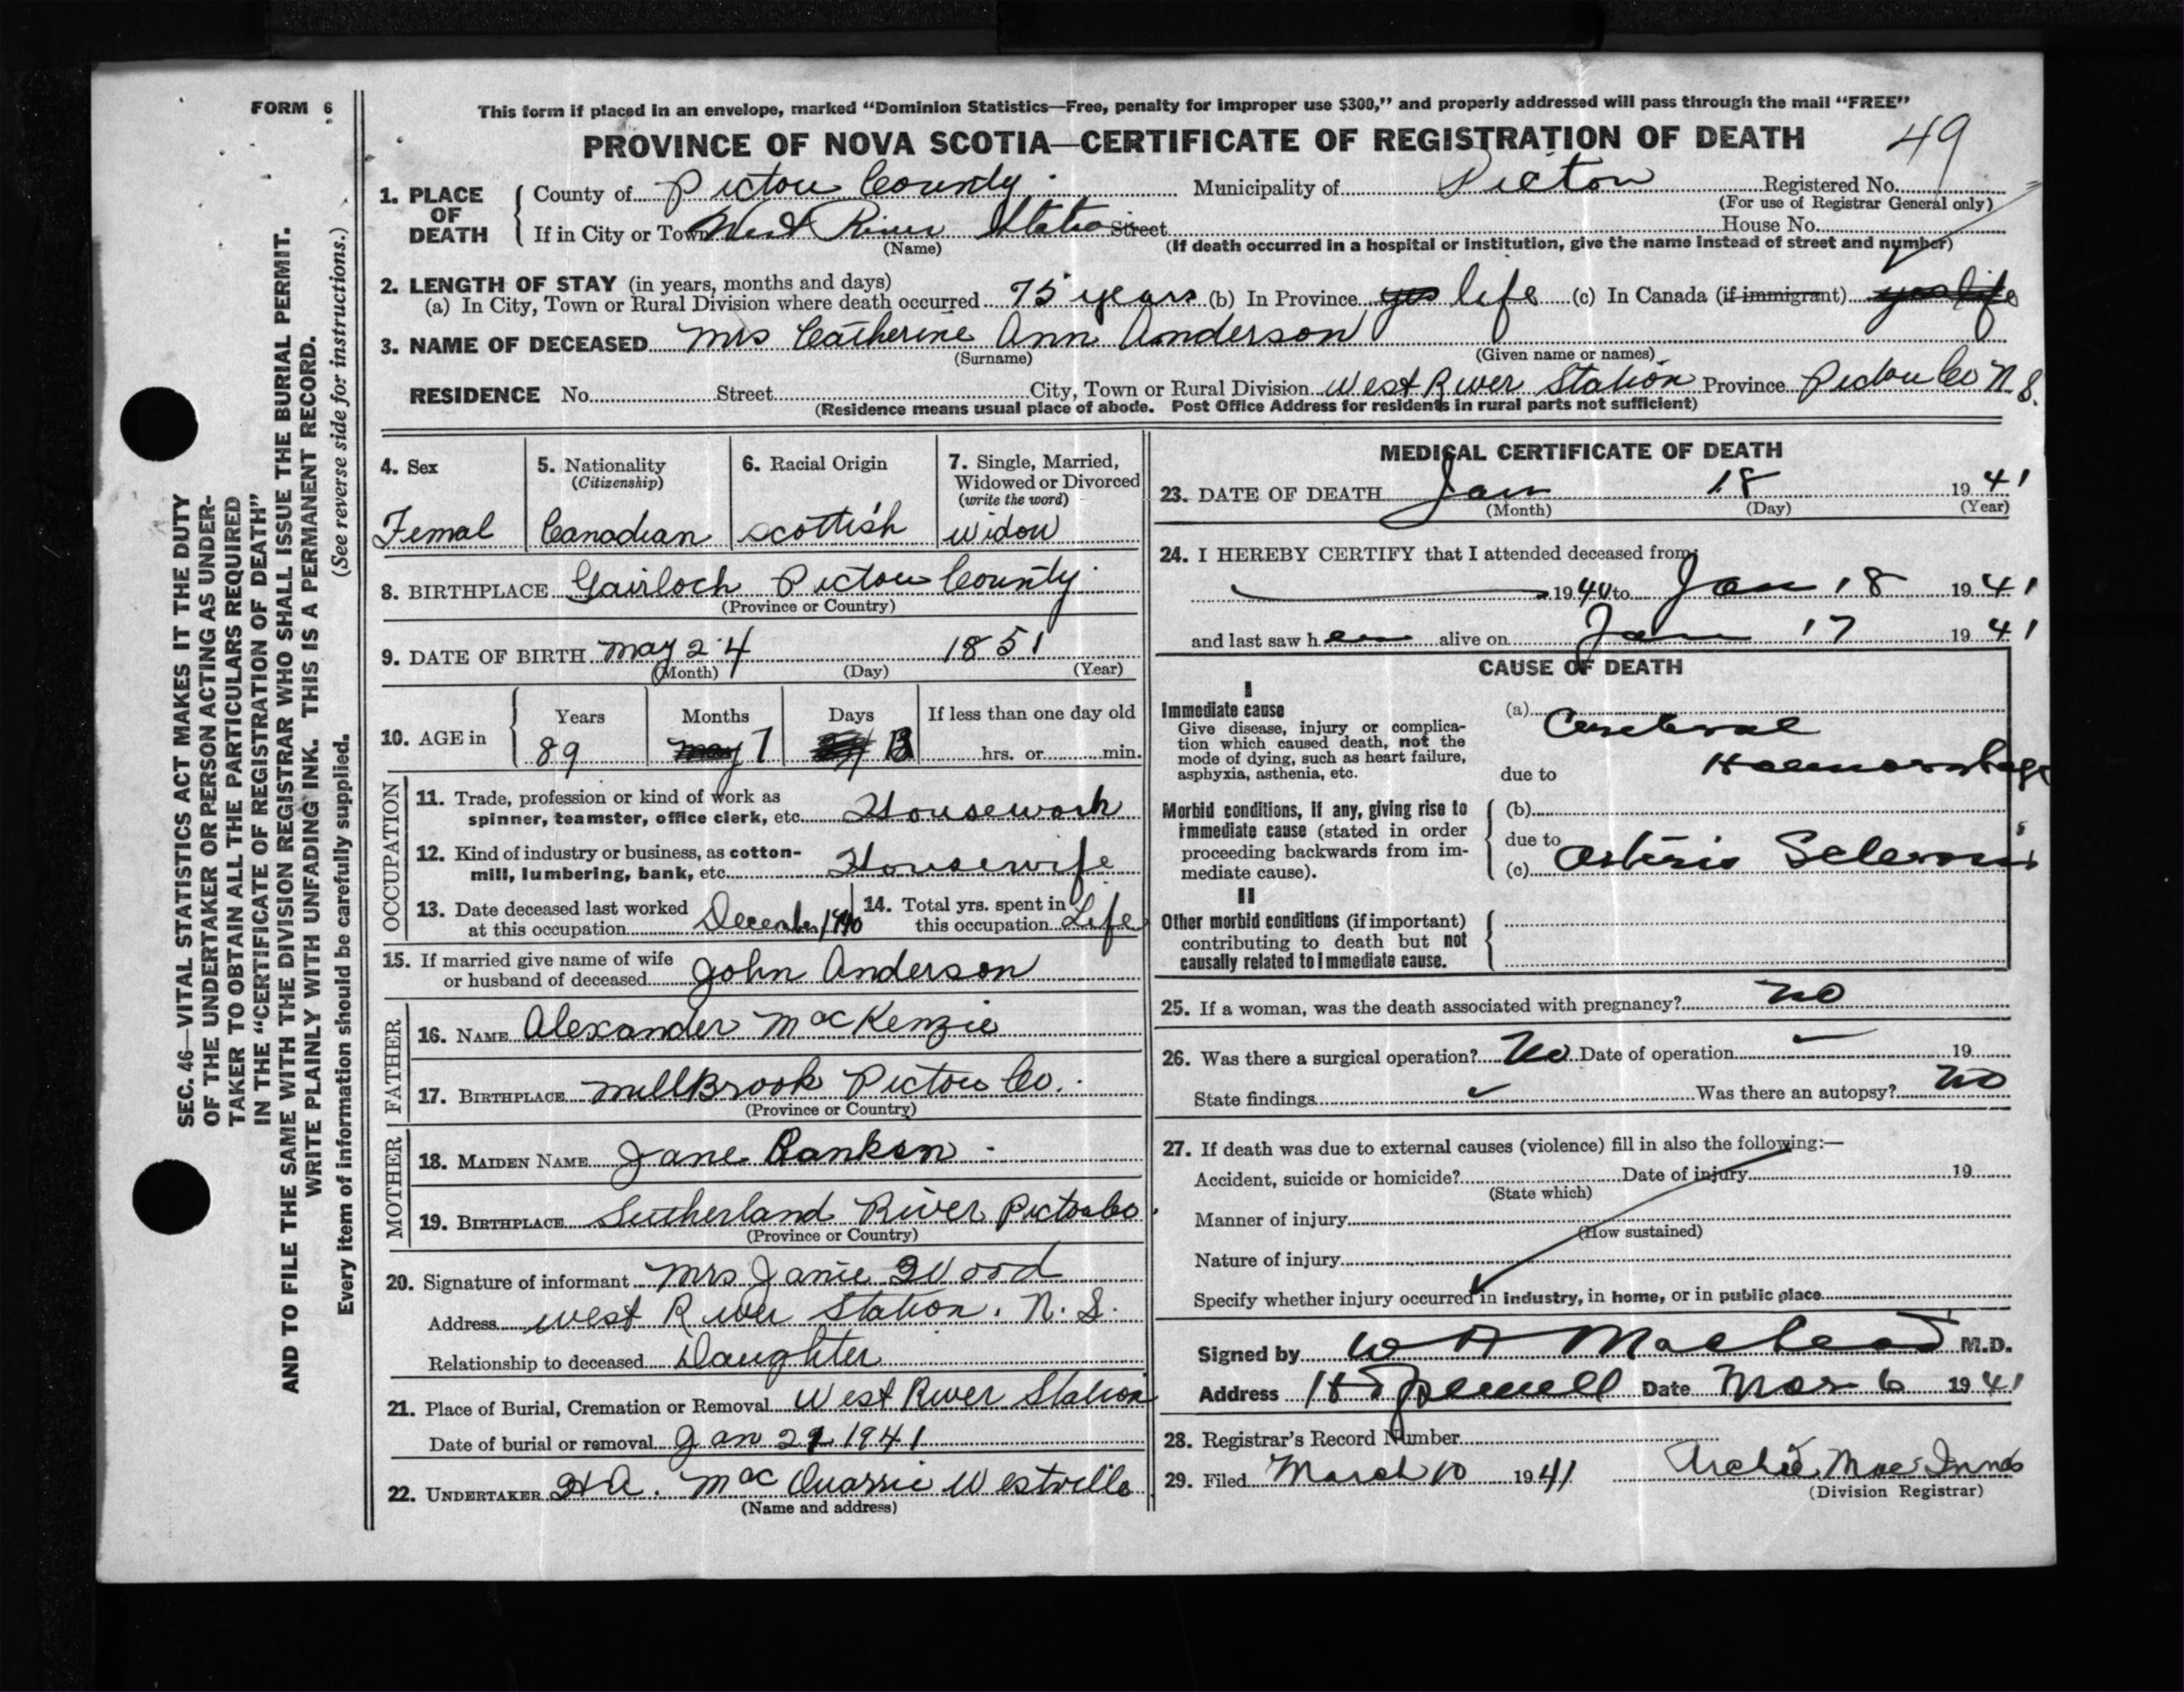 FORM 6
This form if placed in an envelope, marked “Dominion Statistics—Free, penalty for improper use $300,” and properly addressed will pass through the mail “FREE”
PROVINCE OF NOVA SCOTIA—CERTIFICATE OF REGISTRATION OF DEATH
49
1. PLACE OF DEATH
County of Pictou County Municipality of Pictou Registered No.
(For use of Registrar General only)
If in City or Town West River Statio Street House No.
(Name) (If death occurred in a hospital or institution, give the name instead of street and number)
2. LENGTH OF STAY (in years, months and days)
(a) In City, Town or Rural Division where death occurred 75 years (b) In Province yes life (c) In Canada (if immigrant) yes life
3. NAME OF DECEASED Mrs Catherine Ann Anderson
(Surname) (Given name or names)
RESIDENCE No. Street City, Town or Rural Division West River Station Province Pictou Co N.S.
(Residence means usual place of abode. Post Office Address for residents in rural parts not sufficient)
4. Sex 5. Nationality (Citizenship) 6. Racial Origin 7. Single, Married, Widowed or Divorced (write the word)
Femal Canadian Scottish Widow
8. BIRTHPLACE Gairloch Pictou County
(Province or Country)
9. DATE OF BIRTH May 24 1851
(Month) (Day) (Year)
10. AGE in Years Months Days If less than one day old
89 May 7 hrs. or min.
OCCUPATION
11. Trade, profession or kind of work as
spinner, teamster, office clerk, etc. Housework
12. Kind of industry or business, as cotton-
mill, lumbering, bank, etc. Housewife
13. Date deceased last worked
at this occupation December 1940
14. Total yrs. spent in
this occupation Life
15. If married give name of wife
or husband of deceased John Anderson
FATHER
16. NAME Alexander MacKenzie
17. BIRTHPLACE MillBrook Pictou Co.
(Province or Country)
MOTHER
18. MAIDEN NAME Jane Rankin
19. BIRTHPLACE Sutherland River Pictou Co
(Province or Country)
20. Signature of informant Mrs Janie Wood
Address West River Station. N.S.
Relationship to deceased Daughter
21. Place of Burial, Cremation or Removal West River Station
Date of burial or removal Jan 21 1941
22. UNDERTAKER H A. MacQuarrie Westville
(Name and address)
MEDICAL CERTIFICATE OF DEATH
23. DATE OF DEATH Jan 18 1941
(Month) (Day) (Year)
24. I HEREBY CERTIFY that I attended deceased from
1940 to Jan 18 1941
and last saw her alive on Jan 17 1941
CAUSE OF DEATH
I
Immediate cause
Give disease, injury or complica-
tion which caused death, not the
mode of dying, such as heart failure,
asphyxia, asthenia, etc.
(a) Cerebral
due to Haemorrhage
Morbid conditions, if any, giving rise to
immediate cause (stated in order
proceeding backwards from im-
mediate cause).
(b)
due to
(c) Arterio Sclerosis
II
Other morbid conditions (if important)
contributing to death but not
causally related to immediate cause.
25. If a woman, was the death associated with pregnancy? No
26. Was there a surgical operation? No Date of operation 19
State findings Was there an autopsy? No
27. If death was due to external causes (violence) fill in also the following:—
Accident, suicide or homicide? Date of injury 19
(State which)
Manner of injury
(How sustained)
Nature of injury
Specify whether injury occurred in industry, in home, or in public place
Signed by W A MacLeod M.D.
Address Hopewell Date Mar 6 1941
28. Registrar's Record Number
29. Filed March 10 1941 Archie MacInnes
(Division Registrar)
SEC. 46—VITAL STATISTICS ACT MAKES IT THE DUTY
OF THE UNDERTAKER OR PERSON ACTING AS UNDER-
TAKER TO OBTAIN ALL THE PARTICULARS REQUIRED
IN THE “CERTIFICATE OF REGISTRATION OF DEATH”
AND TO FILE THE SAME WITH THE DIVISION REGISTRAR WHO SHALL ISSUE THE BURIAL PERMIT.
WRITE PLAINLY WITH UNFADING INK. THIS IS A PERMANENT RECORD.
Every item of information should be carefully supplied. (See reverse side for instructions.)